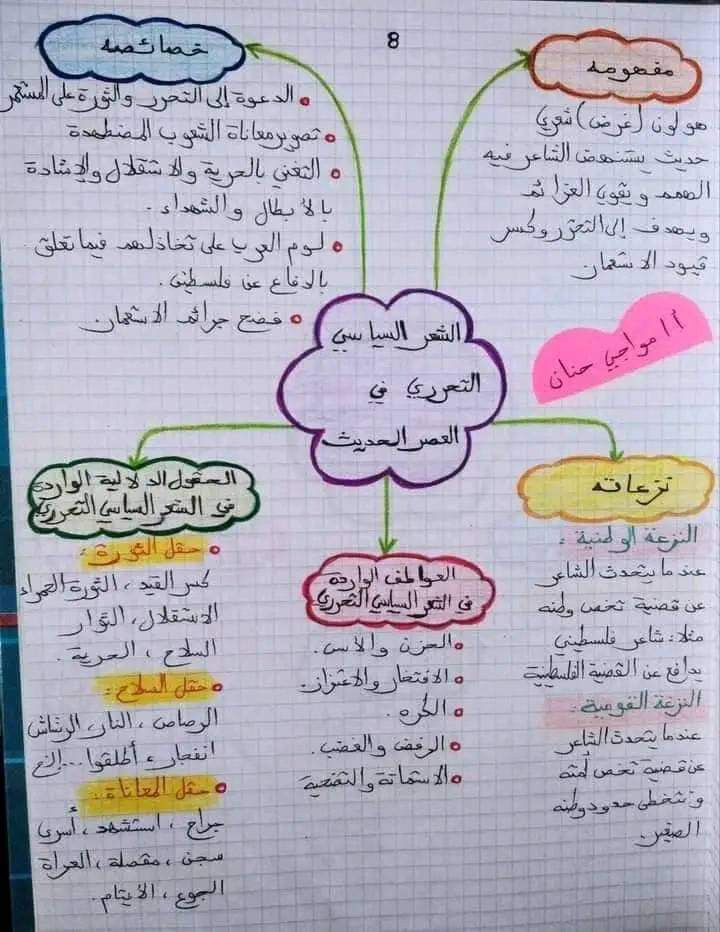 8
مفهومه
هو لون (غرض) شعري
حديث يستنهض الشاعر فيه
الهمم و يقوي العزائم
ويهدف إلى التحرر وكسر
قيود الاستعمار
خصائصه
الدعوة إلى التحرر والثورة على المستعمر
تصوير معاناة الشعوب المضطهدة
التغني بالحرية والاستقلال والإشادة
بالأبطال والشهداء.
لوم العرب على تخاذلهم فيما تعلق
بالدفاع عن فلسطين.
فضح جرائم الاستعمار.
الشعر السياسي
التحرري في
العصر الحديث
أ/ا مواجي حنان
نزعاته
النزعة الوطنية:
عندما يتحدث الشاعر
عن قضية تخص وطنه
مثلا: شاعر فلسطيني
يدافع عن القضية الفلسطينية
النزعة القومية:
عندما يتحدث الشاعر
عن قضية تخص أمته
وتتخطى حدود وطنه
الصغير.
العواطف الواردة
في الشعر السياسي التحرري
الحزن والأسى.
الافتخار والاعتزاز.
الكره.
الرفض والغضب.
الاستماتة والتضحية
الحقول الدلالية الواردة
في الشعر السياسي التحرري
حقل الثورة:
كسر القيد، الثورة الحمراء
الاستقلال، الثوار
السلاح، الحرية.
حقل السلاح:
الرصاص، النار، الرشاش
انفجار، أطلقوا...إلخ
حقل المعاناة:
جراح، استشهد، أسرى
سجن، مقصلة، العراة
الجوع، الأيتام.